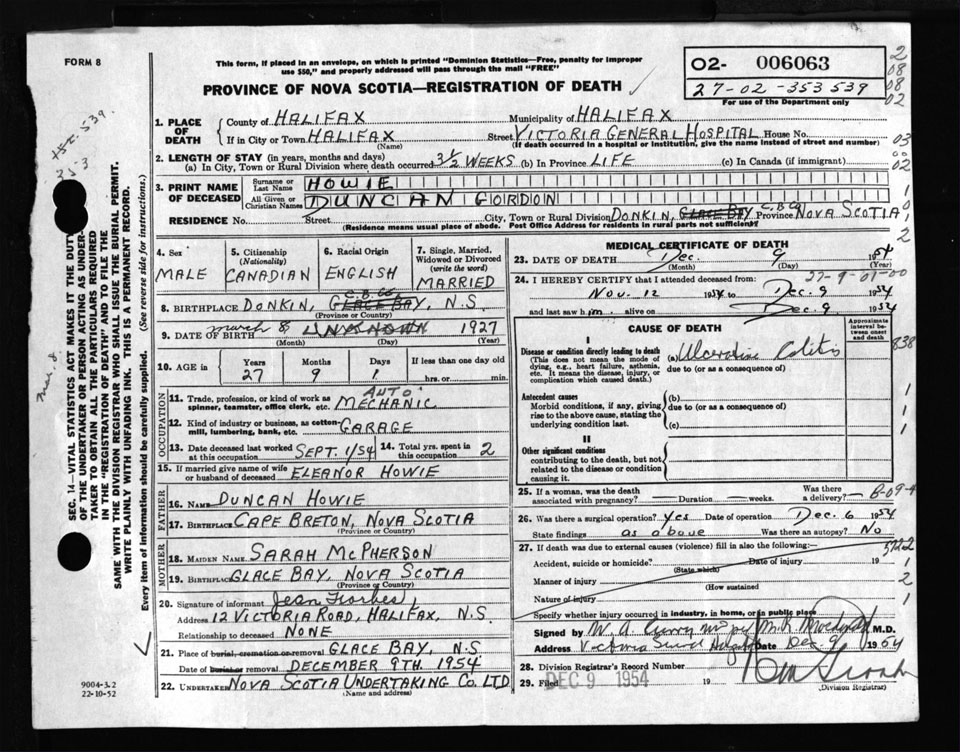 FORM 8
This form, if placed in an envelope, on which is printed "Dominion Statistics—Free, penalty for improper
use $50," and properly addressed will pass through the mail "FREE"
PROVINCE OF NOVA SCOTIA—REGISTRATION OF DEATH
02- 006063
27-02-353539
For use of the Department only
2
08
08
02
1. PLACE OF DEATH
County of HALIFAX Municipality of HALIFAX
If in City or Town HALIFAX Street VICTORIA GENERAL HOSPITAL House No.
(Name) (If death occurred in a hospital or institution, give the name instead of street and number)
03
00
02
2. LENGTH OF STAY (in years, months and days)
(a) In City, Town or Rural Division where death occurred 3 1/2 WEEKS (b) In Province LIFE (c) In Canada (if immigrant)
3. PRINT NAME OF DECEASED
Surname or Last Name HOWIE
All Given or Christian Names DUNCAN GORDON
RESIDENCE No. Street City, Town or Rural Division DONKIN, GLACE BAY C.B. Co Province NOVA SCOTIA
(Residence means usual place of abode. Post Office Address for residents in rural parts not sufficient)
4. Sex MALE
5. Citizenship (Nationality) CANADIAN
6. Racial Origin ENGLISH
7. Single, Married, Widowed or Divorced (write the word) MARRIED
8. BIRTHPLACE DONKIN, GLACE BAY, C.B. Co N.S.
(Province or Country)
9. DATE OF BIRTH March 8 UNKNOWN 1927
(Month) (Day) (Year)
10. AGE in Years 27 Months 9 Days 1 If less than one day hrs. or min.
OCCUPATION
11. Trade, profession, or kind of work as spinner, teamster, office clerk, etc. AUTO MECHANIC
12. Kind of industry or business, as cotton-mill, lumbering, bank, etc. GARAGE
13. Date deceased last worked at this occupation SEPT. 1/54
14. Total yrs. spent in this occupation 2
15. If married give name of wife or husband of deceased ELEANOR HOWIE
FATHER
16. Name DUNCAN HOWIE
17. Birthplace CAPE BRETON, NOVA SCOTIA
(Province or Country)
MOTHER
18. Maiden Name SARAH McPHERSON
19. Birthplace GLACE BAY, NOVA SCOTIA
(Province or Country)
20. Signature of informant Jean Forbes
Address 12 VICTORIA ROAD, HALIFAX, N.S.
Relationship to deceased NONE
21. Place of burial, cremation or removal GLACE BAY, N.S
Date of burial or removal DECEMBER 9TH. 1954
22. Undertaker NOVA SCOTIA UNDERTAKING CO. LTD
(Name and address)
MEDICAL CERTIFICATE OF DEATH
23. DATE OF DEATH Dec. 9 1954
(Month) (Day) (Year)
24. I HEREBY CERTIFY that I attended deceased from: 27-9-01-00
Nov. 12 1954 to Dec. 9 1954
and last saw him alive on Dec. 9 1954
CAUSE OF DEATH
Approximate interval between onset and death
I
Disease or condition directly leading to death
(This does not mean the mode of dying, e.g., heart failure, asthenia, etc. It means the disease, injury, or complication which caused death.)
(a) Ulcerative Colitis
due to (or as a consequence of)
Antecedent causes
Morbid conditions, if any, giving rise to the above cause, stating the underlying condition last.
(b)
due to (or as a consequence of)
(c)
II
Other significant conditions
contributing to the death, but not related to the disease or condition causing it.
25. If a woman, was the death associated with pregnancy? Duration weeks. Was there a delivery?
26. Was there a surgical operation? Yes Date of operation Dec. 6 1954
State findings as above Was there an autopsy? No
27. If death was due to external causes (violence) fill in also the following:—
Accident, suicide or homicide? Date of injury 19
(State which)
Manner of injury
(How sustained)
Nature of injury
Specify whether injury occurred in industry, in home, or in public place
Signed by W. A. Curry M.D.
Address Date Dec 9 1954
28. Division Registrar's Record Number
29. Filed DEC 9 1954 19
(Division Registrar)
SEC. 14—VITAL STATISTICS ACT MAKES IT THE DUTY
OF THE UNDERTAKER OR PERSON ACTING AS UNDER-
TAKER TO OBTAIN ALL THE PARTICULARS REQUIRED
IN THE "REGISTRATION OF DEATH" AND TO FILE THE
SAME WITH THE DIVISION REGISTRAR WHO SHALL ISSUE THE BURIAL PERMIT.
WRITE PLAINLY WITH UNFADING INK. THIS IS A PERMANENT RECORD.
Every item of information should be carefully supplied. (See reverse side for instructions.)
9004-3.2
22-10-52